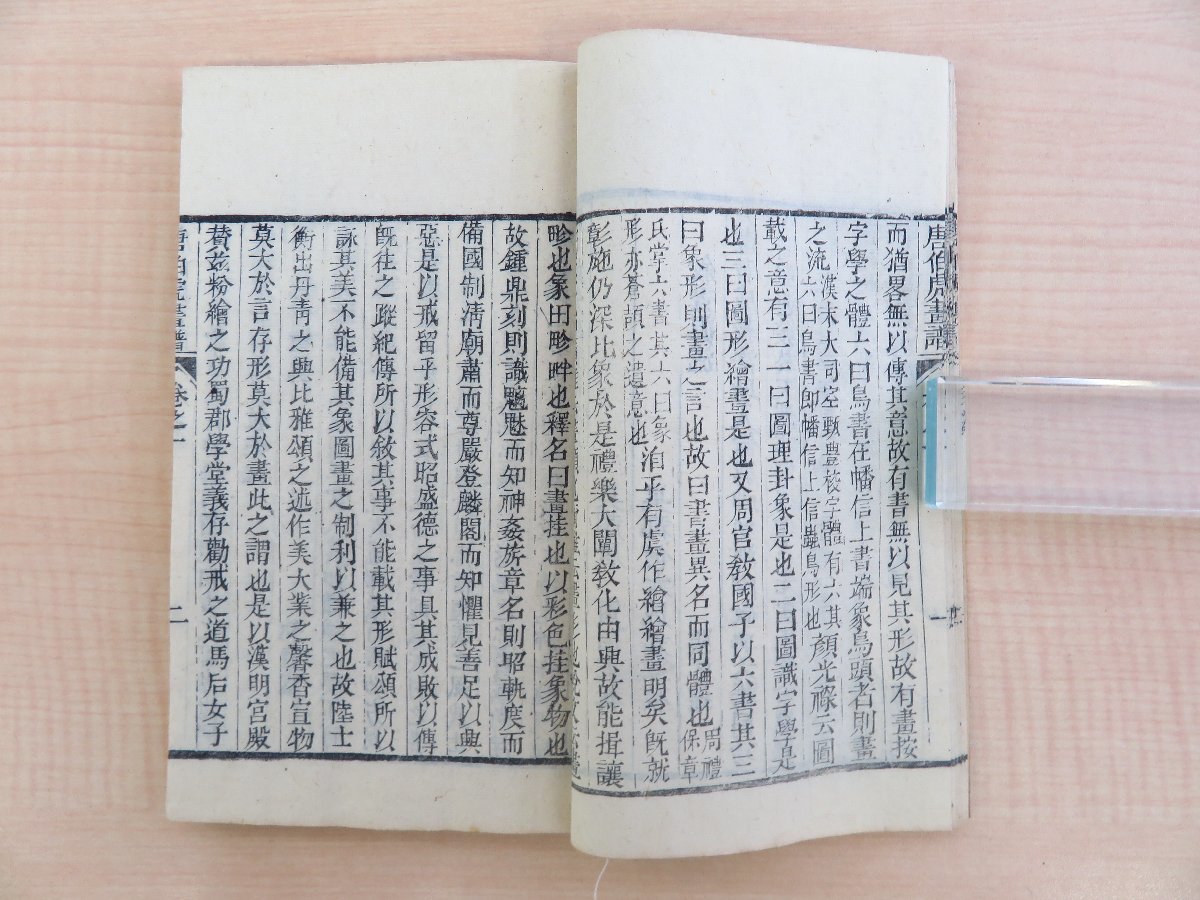 唐伯虎畫譜
一
而猶畧無以傳其意故有書無以見其形故有畫按
字學之體六曰鳥書在幡信上書端象鳥頭者則畫
之流漢末大司空甄豐校字體有六其六曰鳥書即幡信上信蟲鳥形也顏光祿云圖
載之意有三一曰圖理卦象是也二曰圖識字學是
也三曰圖形繪畫是也又周官敎國子以六書其三
曰象形則畫之言也故曰書畫異名而同體也周禮保章
氏掌六書其六曰象形亦蒼頡之遺意也洎乎有虞作繪繪畫明矣旣就
彰施仍深比象於是禮樂大闡敎化由興故能揖讓
畛也象田畛畔也釋名曰畫挂也以彩色挂象物也
故鍾鼎刻則識魑魅而知神姦旂章名則昭軌度而
備國制清廟肅而尊嚴登麟閣而知懼見善足以興
惡是以戒留乎形容式昭盛德之事具其成敗以傳
旣往之蹤紀傳所以敘其事不能載其形賦頌所以
詠其美不能備其象圖畫之制利以兼之也故陸士
衡出丹靑之興比雅頌之述作美大業之馨香宣物
莫大於言存形莫大於畫此之謂也是以漢明宮殿
賛茲粉繪之功蜀郡學堂義存勸戒之道馬后女子
唐伯虎畫譜
卷之一
二